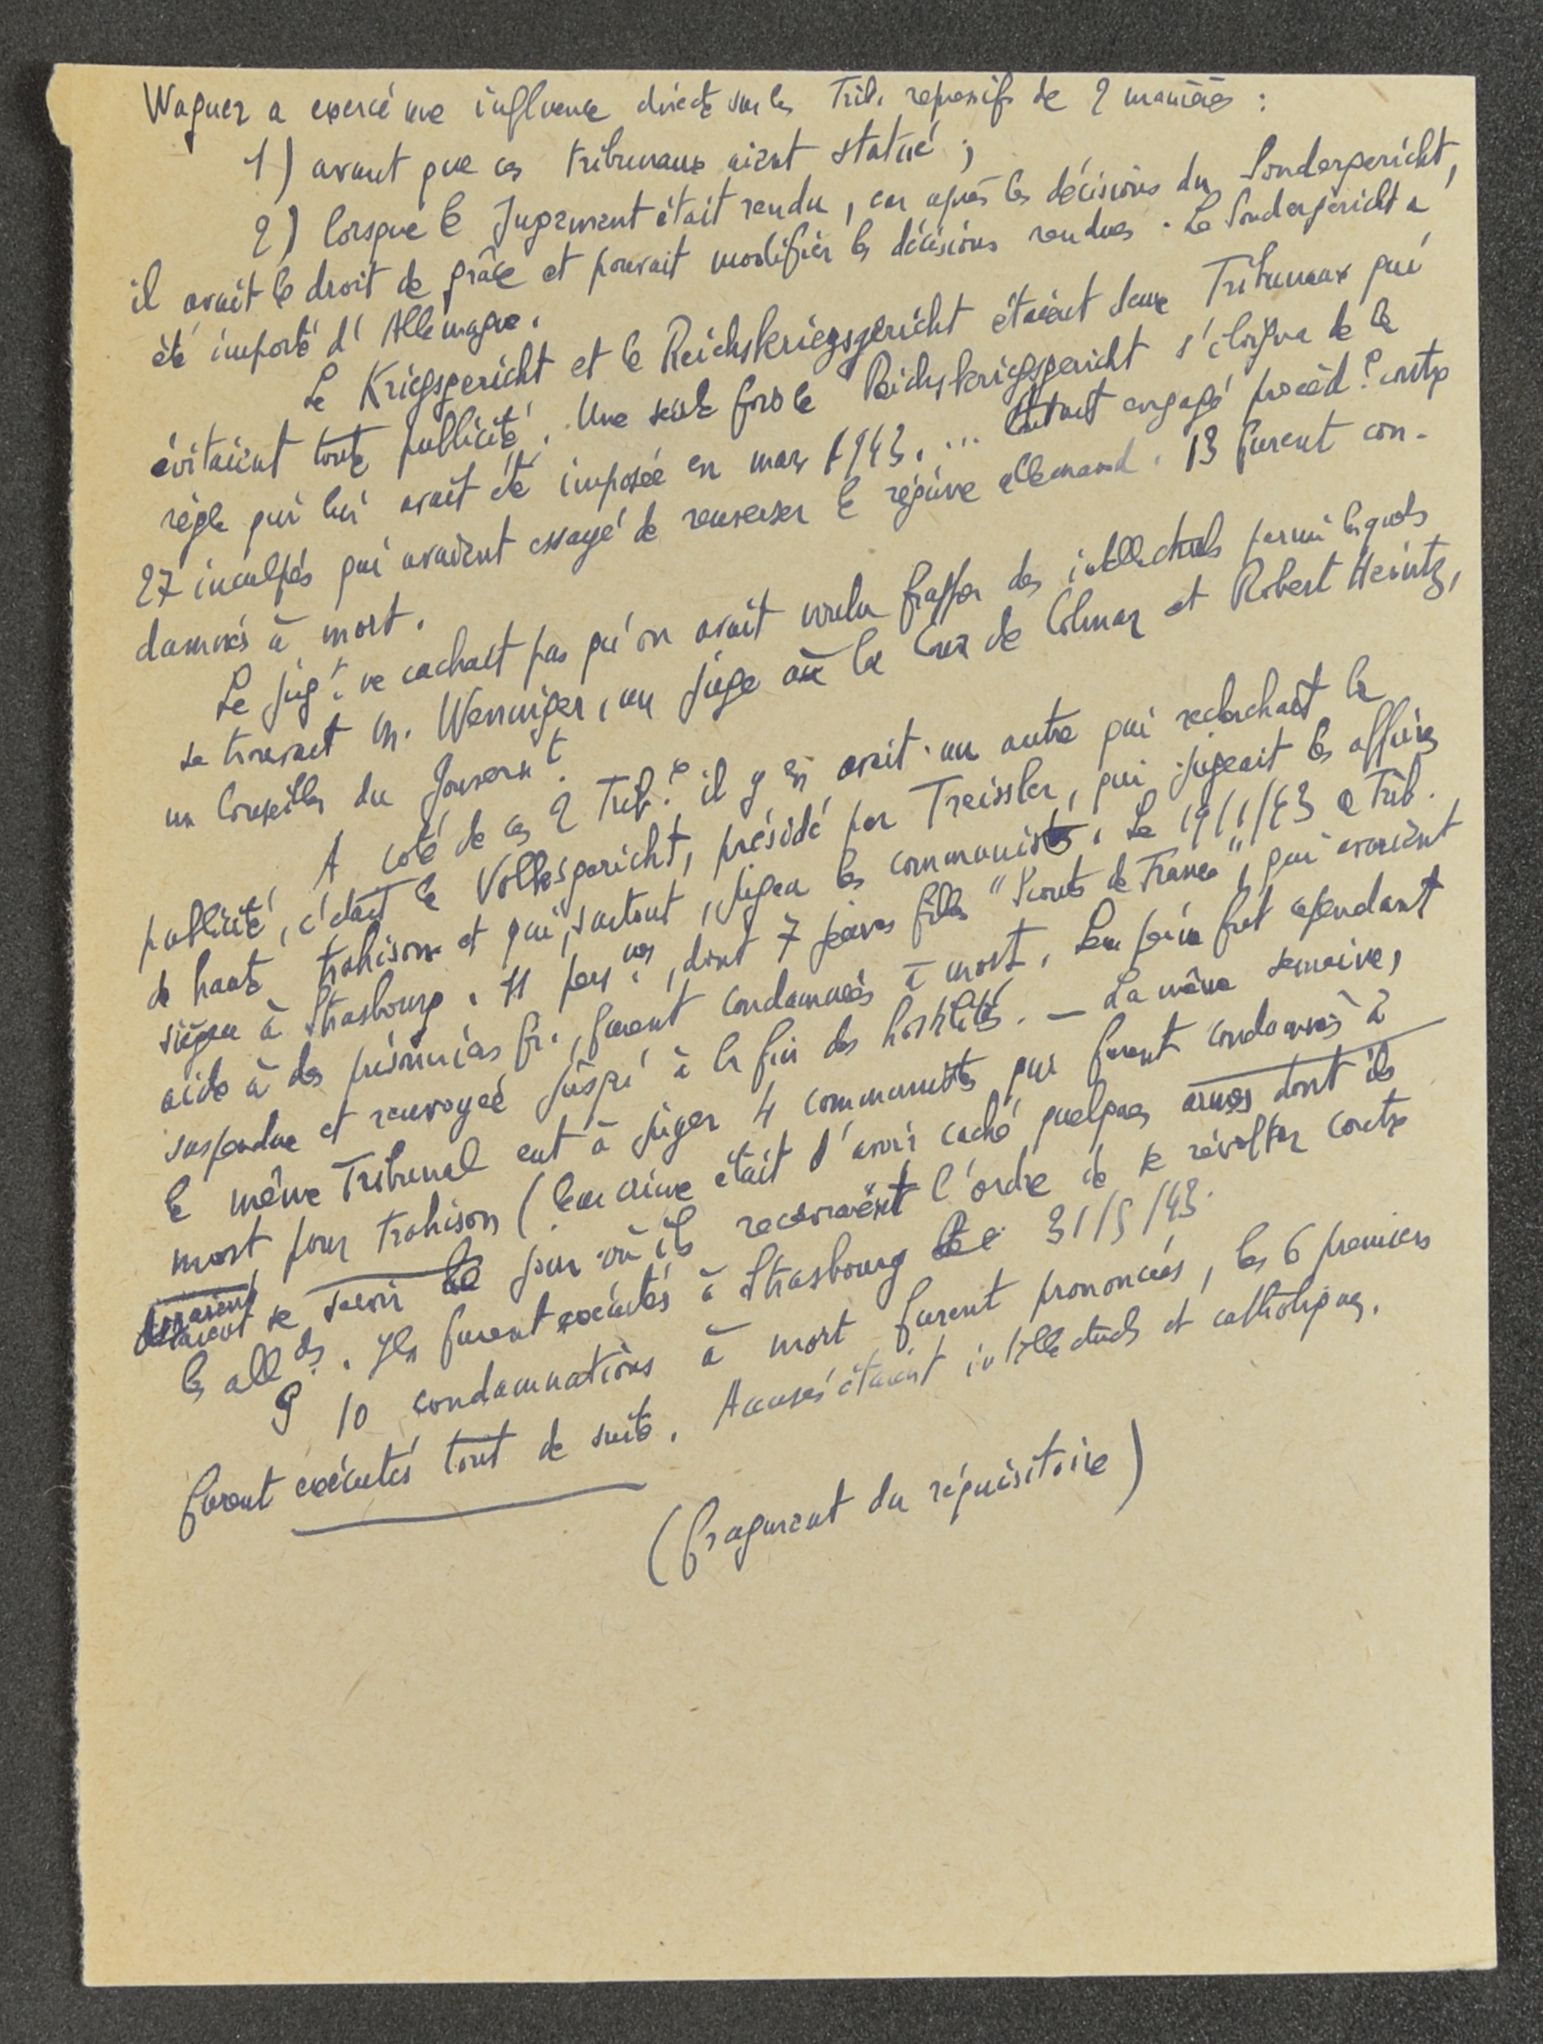 Wagner a exercé une influence directe sur les Trib. répressifs de 2 manières :
1) avant que ces tribunaux aient statué ;
2) lorsque le Jugement était rendu, car après les décisions du Sondergericht,
il avait le droit de grâce et pouvait modifier les décisions rendues. Le Sondergericht a
été importé d'Allemagne.
Le Kriegsgericht et le Reichskriegsgericht étaient deux Tribunaux qui
évitaient toute publicité. Une seule fois le Reichskriegsgericht s'éloigna de la
règle qui lui avait été imposée en mars 1943. ... engagé procéd. contre
27 inculpés qui avaient essayé de renverser le régime allemand. 13 furent con-
damnés à mort.
Le jugt. ne cachait pas qu'on avait voulu frapper des intellectuels parmi lesquels
se trouvait M. Wenninger, un juge à la Cour de Colmar et Robert Heintz,
un Conseiller du Gouvernt.
A coté de ces 2 Trib. il y en avait un autre qui recherchait la
publicité, c'était le Volksgericht, présidé par Treissler, qui jugeait les affaires
de haute trahison et qui, surtout, jugea les communistes. Le 19/1/43 ce Trib.
siégea à Strasbourg. 11 persnes, dont 7 jeunes filles "Scouts de France", qui avaient
aidé à des prisonniers fr., furent condamnées à mort. Leur peine fut cependant
suspendue et renvoyée jusqu'à la fin des hostilités. — La même semaine,
le même Tribunal eut à juger 4 communistes qui furent condamnés à
mort pour trahison (leur crime était d'avoir caché quelques armes dont ils
devaient se servir le jour où ils recevraient l'ordre de se révolter contre
les allds. Ils furent exécutés à Strasbourg le 31/5/43.
9 10 condamnations à mort furent prononcées, les 6 premiers
furent exécutés tout de suite. Accusés étaient intellectuels et catholiques.
(fragment du réquisitoire)